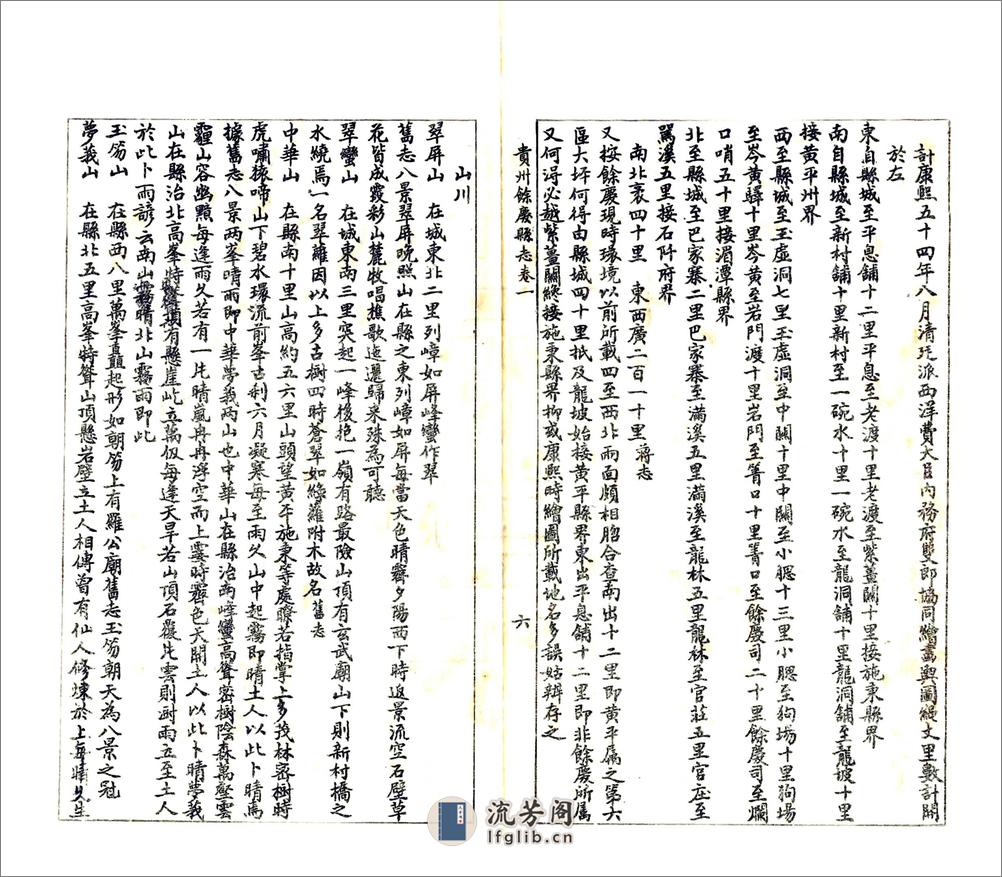 計康熙五十四年八月清廷派西洋費大臣內務府雙郎協同繪畫輿圖縷丈里數計開
於左
東自縣城至平息舖十二里平息至老渡十里老渡至紫薑關十里接施秉縣界
南自縣城至新村舖十里新村至一碗水十里一碗水至龍洞舖十里龍洞舖至龍坡十里
接黃平州界
西至縣城至玉虛洞七里玉虛洞至中關十里中關至小腮十三里小腮至狗場十里狗場
至岑黃驛十里岑黃至岩門渡十里岩門至箐口十里箐口至餘慶司二十里餘慶司至爛
口哨五十里接湄潭縣界
北至縣城至巴家寨二里巴家寨至滿溪五里滿溪至龍林五里龍林至官莊五里官莊至
駡溪五里接石阡府界
南北袤四十里 東西廣二百一十里蔣志
又按餘慶現時環境以前所載四至西北兩面頗相脗合查南出十二里即黃平屬之第六
區大坪何得由縣城四十里抵及龍坡始接黃平縣界東出平息舖十二里即非餘慶所屬
又何得必越紫薑關總接施秉縣界抑或康熙時繪圖所載地名多誤姑辨存之
貴州餘慶縣志卷一
六
山川
翠屏山 在城東北二里列嶂如屏峰巒作翠
舊志八景翠屏晚照山在縣之東列嶂如屏每當天色晴霽夕陽西下時返景流空石壁草
花皆成霞彩山麓牧唱樵歌迤邐歸來殊為可聽
翠巒山 在城東南三里突起一峰後抱一嶺有路最險山頂有玄武廟山下則新村橋之
水繞焉一名翠蘿因以上多古樹四時蒼翠如綠蘿附木故名舊志
中華山 在縣南十里山高約五六里山頭望黃平施秉等處瞭若指掌上多茂林密樹時
虎嘯猿啼山下碧水環流前峯古刹六月凝寒每至雨久山中起霧即晴土人以此卜晴焉
據舊志八景兩峯晴雨即中華夢我兩山也中華山在縣治南峰巒高聳密樹陰森萬壑雲
霾山容幽黯每逢雨久若有一片晴嵐冉冉浮空而上霎時霽色天開土人以此卜晴夢我
山在縣治北高峯特聳頂有懸崖屹立萬仭每逢天旱若山頂石覆片雲則尌雨立至土人
於此卜雨諺云南山霧晴北山霧雨即此
玉笏山 在縣西八里萬峯矗起形如朝笏上有羅公廟舊志玉笏朝天為八景之冠
夢我山 在縣北五里高峯特聳山頂懸岩壁立土人相傳曾有仙人修煉於上每晴久生
流芳阁
lfglib.cn